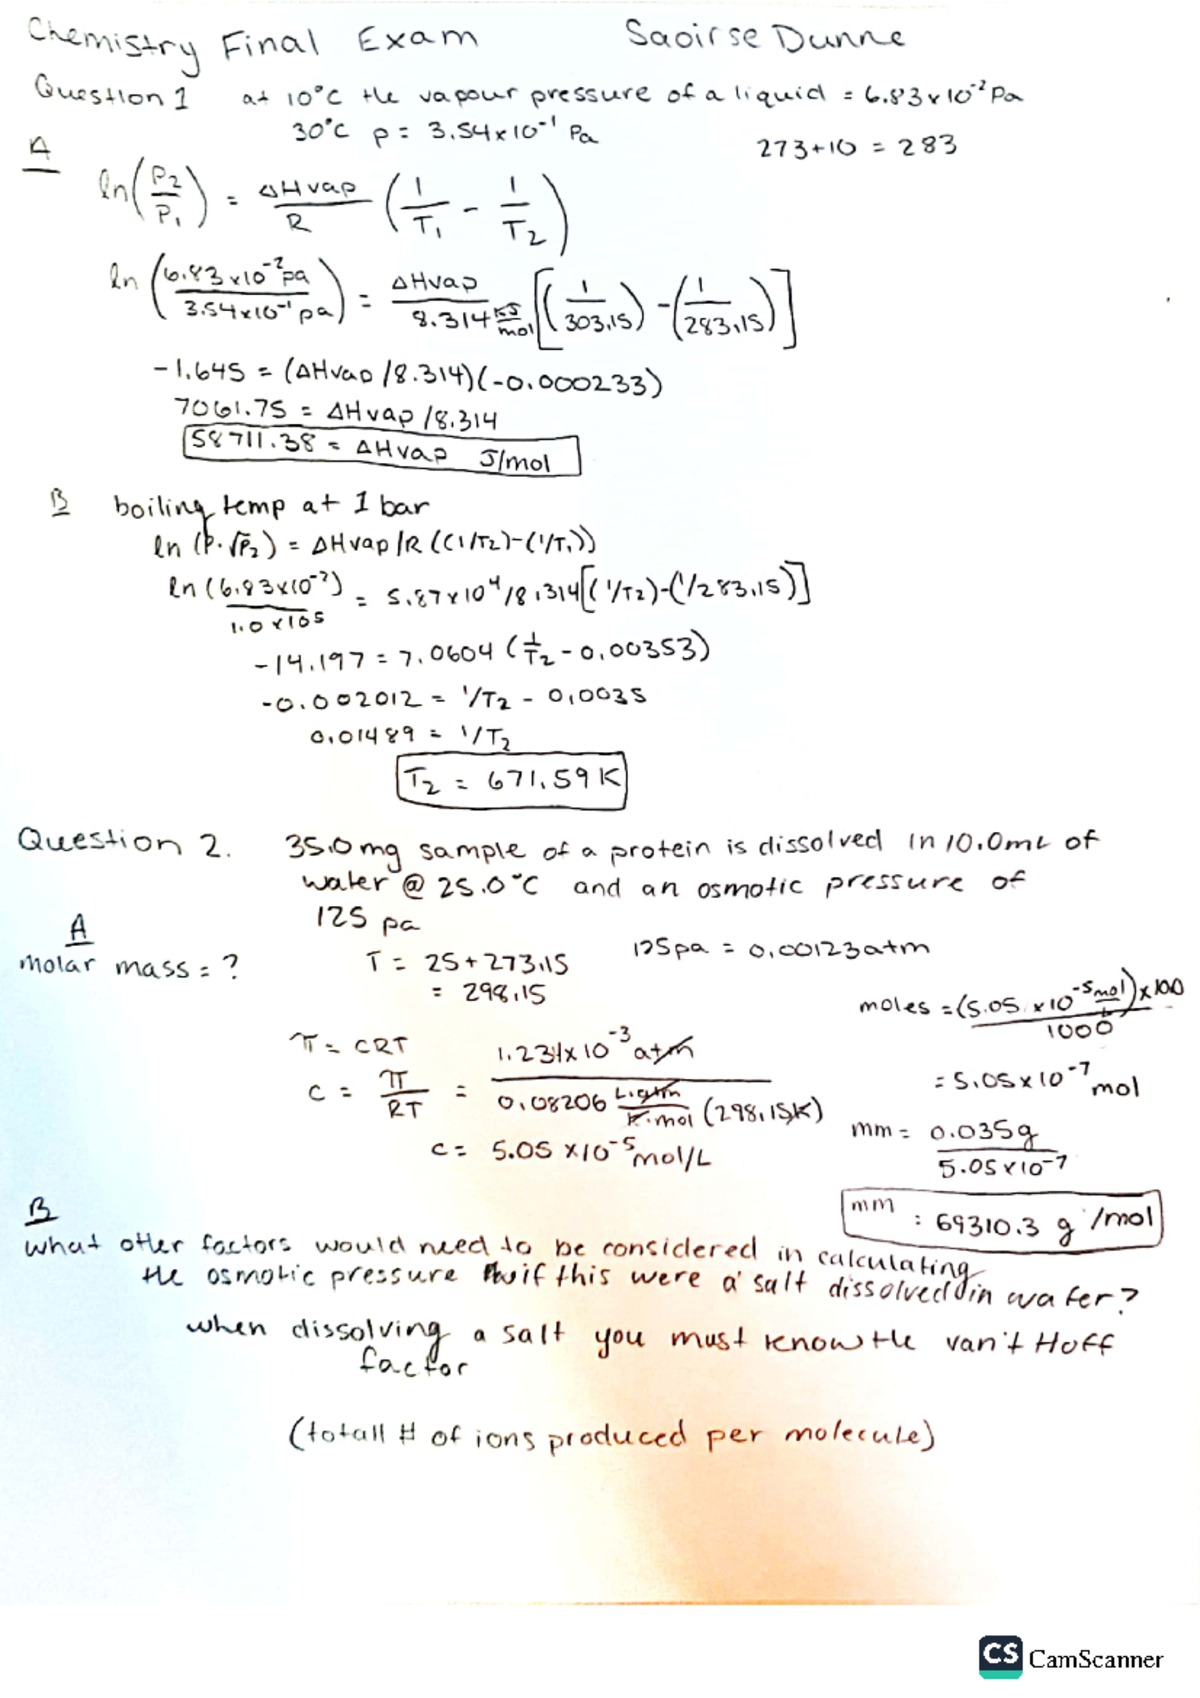 Chemistry Final Exam Saoirse Dunne
Question 1 at 10°C the vapour pressure of a liquid = 6.83x10⁻² Pa
30°C p = 3.54x10⁻¹ Pa
273+10 = 283
A
ln(P₂/P₁) = ΔHvap/R (1/T₁ - 1/T₂)
ln (6.83x10⁻² pa / 3.54x10⁻¹ pa) = ΔHvap / 8.314 KJ/mol [(1/303.15) - (1/283.15)]
-1.645 = (ΔHvap/8.314)(-0.000233)
7061.75 = ΔHvap/8.314
58711.38 = ΔHvap J/mol
B boiling temp at 1 bar
= ΔHvap/R ((1/T₂)-(1/T₁))
ln (6.83x10⁻²) / 1.0x105 = 5.87x10⁴/8.314[(1/T₂)-(1/283.15)]
-14.197 = 7.0604 (1/T₂ - 0.00353)
-0.002012 = 1/T₂ - 0.0035
0.01489 = 1/T₂
T₂ = 671.59 K
Question 2. 35.0mg sample of a protein is dissolved in 10.0mL of
water @ 25.0°C and an osmotic pressure of
125 pa
A
molar mass = ?
T = 25+273.15
= 298.15
125pa = 0.00123atm
moles = (5.05 x10⁻⁵ mol/L) x 100 / 1000
π = CRT
C = π/RT = 1.234x10⁻³ atm / 0.08206 L.atm/K.mol (298.15K)
= 5.05x10⁻⁷ mol
C = 5.05 x10⁻⁵ mol/L
mm = 0.035g / 5.05x10⁻⁷
mm = 69310.3 g/mol
B
what other factors would need to be considered in calculating
the osmotic pressure if this were a salt dissolved in water?
when dissolving a salt you must know the van't Hoff
factor
(totall # of ions produced per molecule)
CS CamScanner